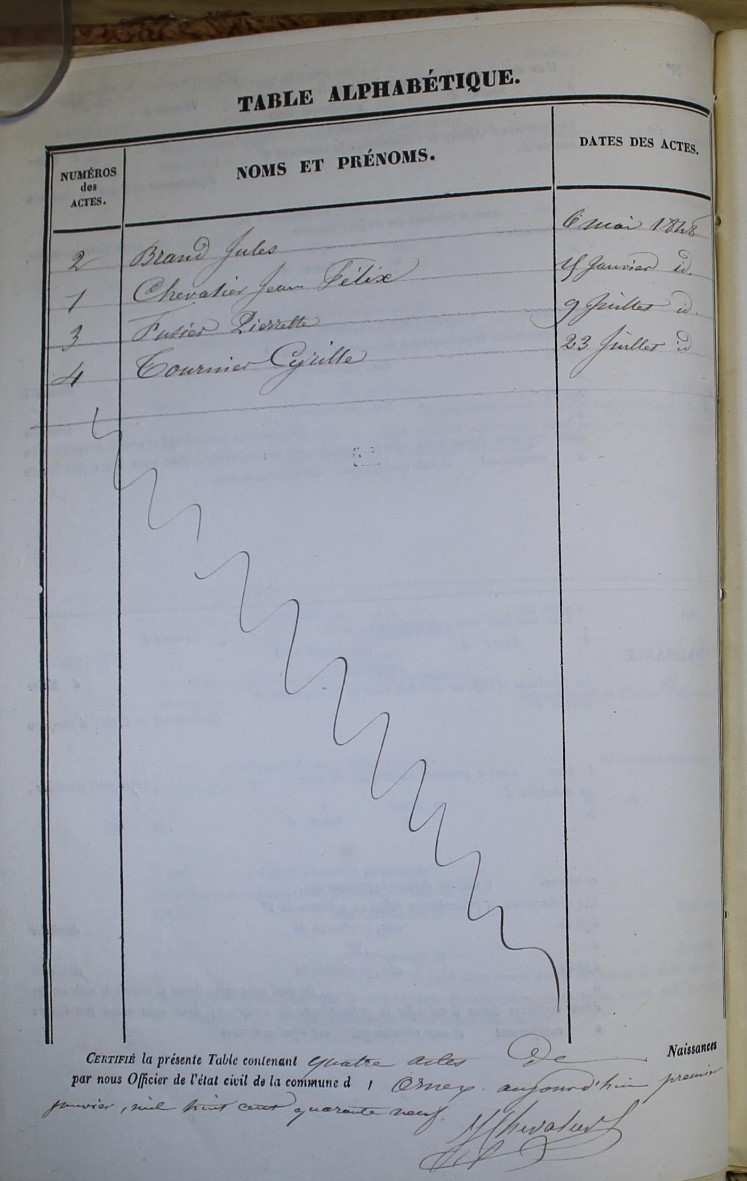 TABLE ALPHABÉTIQUE.
NUMÉROS des ACTES. NOMS ET PRÉNOMS. DATES DES ACTES.
2 Brand Jules 6 mai 1848
1 Chevalier Jean Félix Janvier id.
3 Fusier Pierrette 9 Juillet id.
4 Tournier Cyrille 23 Juillet id
CERTIFIÉ la présente Table contenant quatre actes de Naissances
par nous Officier de l'état civil de la commune d' Ornex aujourd'hui premier
janvier, mil huit cent quarante neuf.
Chevalier